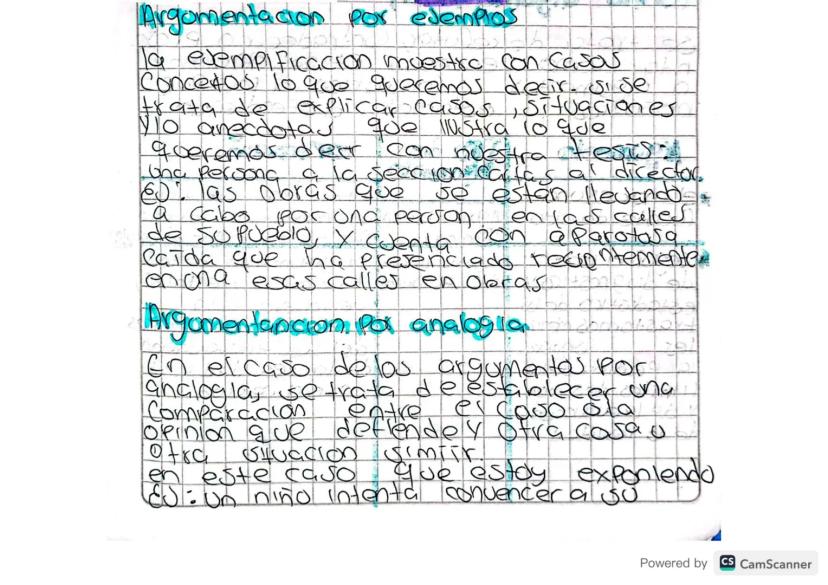 Argumentacion por ejemplos
la ejemplificacion muestra con casos
Concretos lo que queremos decir. si se
trata de explicar casos, situaciones
y/o anecdotas que ilustra lo que
queremos decir con nuestra tesis:
una persona a la seccion cartas al director.
EJ: las obras que se están llevando
a cabo por una person en las calles
de su pueblo, y cuenta con aparatosa
caída que ha presenciado recientemente
en una esas calles en obras
Argumentancion por analogia
En el caso de los argumentos por
analogia, se trata de establecer una
comparacion entre el caso o la
opinion que defiende y otra cosa u
otra situacion similr.
en este caso que estoy exponiendo
EJ: un niño intenta convencer a su
Powered by CS CamScanner